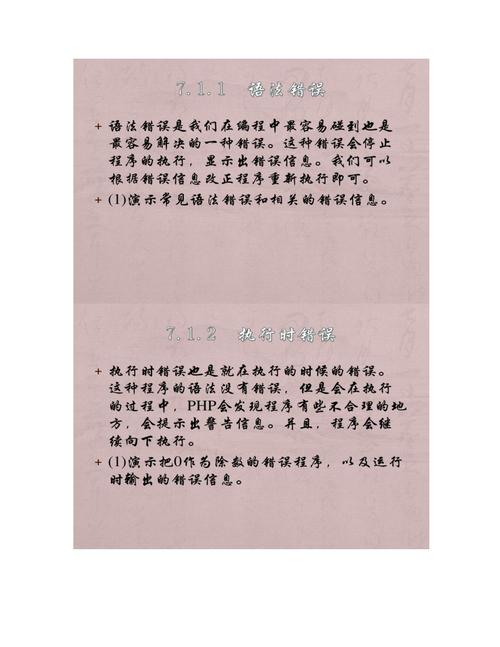 7.1.1 语法错误
+ 语法错误是我们在编程中最容易碰到也是
最容易解决的一种错误。这种错误会停止
程序的执行，显示出错误信息。我们可以
根据错误信息改正程序重新执行即可。
+ (1)演示常见语法错误和相关的错误信息。
7.1.2 执行时错误
+ 执行时错误也是就在执行的时候的错误。
这种程序的语法没有错误，但是会在执行
的过程中，PHP会发现程序有些不合理的地
方，会提示出警告信息。并且，程序会继
续向下执行。
+ (1)演示把0作为除数的错误程序，以及运行
时输出的错误信息。